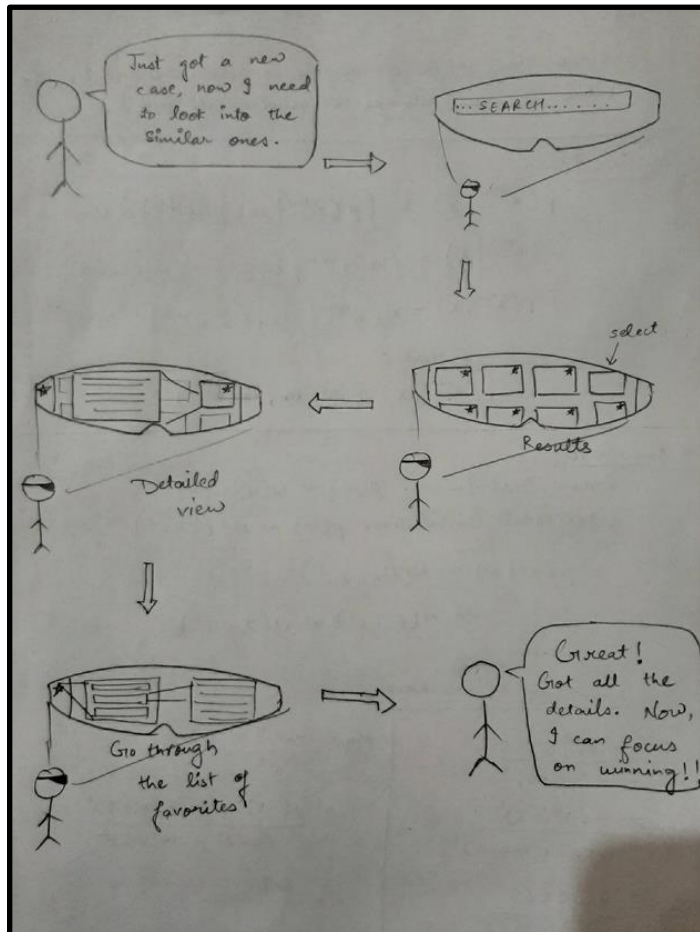 Just got a new
case, now I need
to look into the
similar ones.
...SEARCH......
select
Results
Detailed
view
Go through
the list of
favorites
Great!
Got all the
details. Now,
I can focus
on winning!!